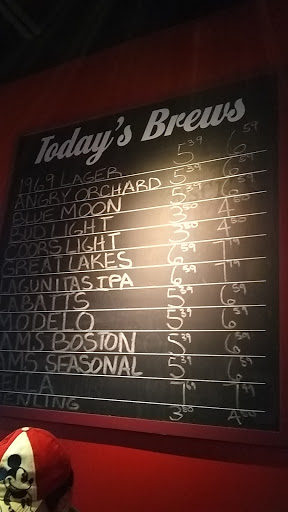 Today's Brews
1969 LAGER 5 39 6 59
ANGRY ORCHARD 5 39 6 59
BLUE MOON 5 39 6 59
BUD LIGHT 3 80 4 80
COORS LIGHT 3 80 4 80
GREAT LAKES 6 59 7 79
AGUNITAS IPA 6 59 7 79
ABATTS 5 39 6 59
MODELO 5 39 6 59
AMS BOSTON 5 39 6 59
AMS SEASONAL 5 39 6 59
ELLA 7 7
ENLING 3 80 4 80